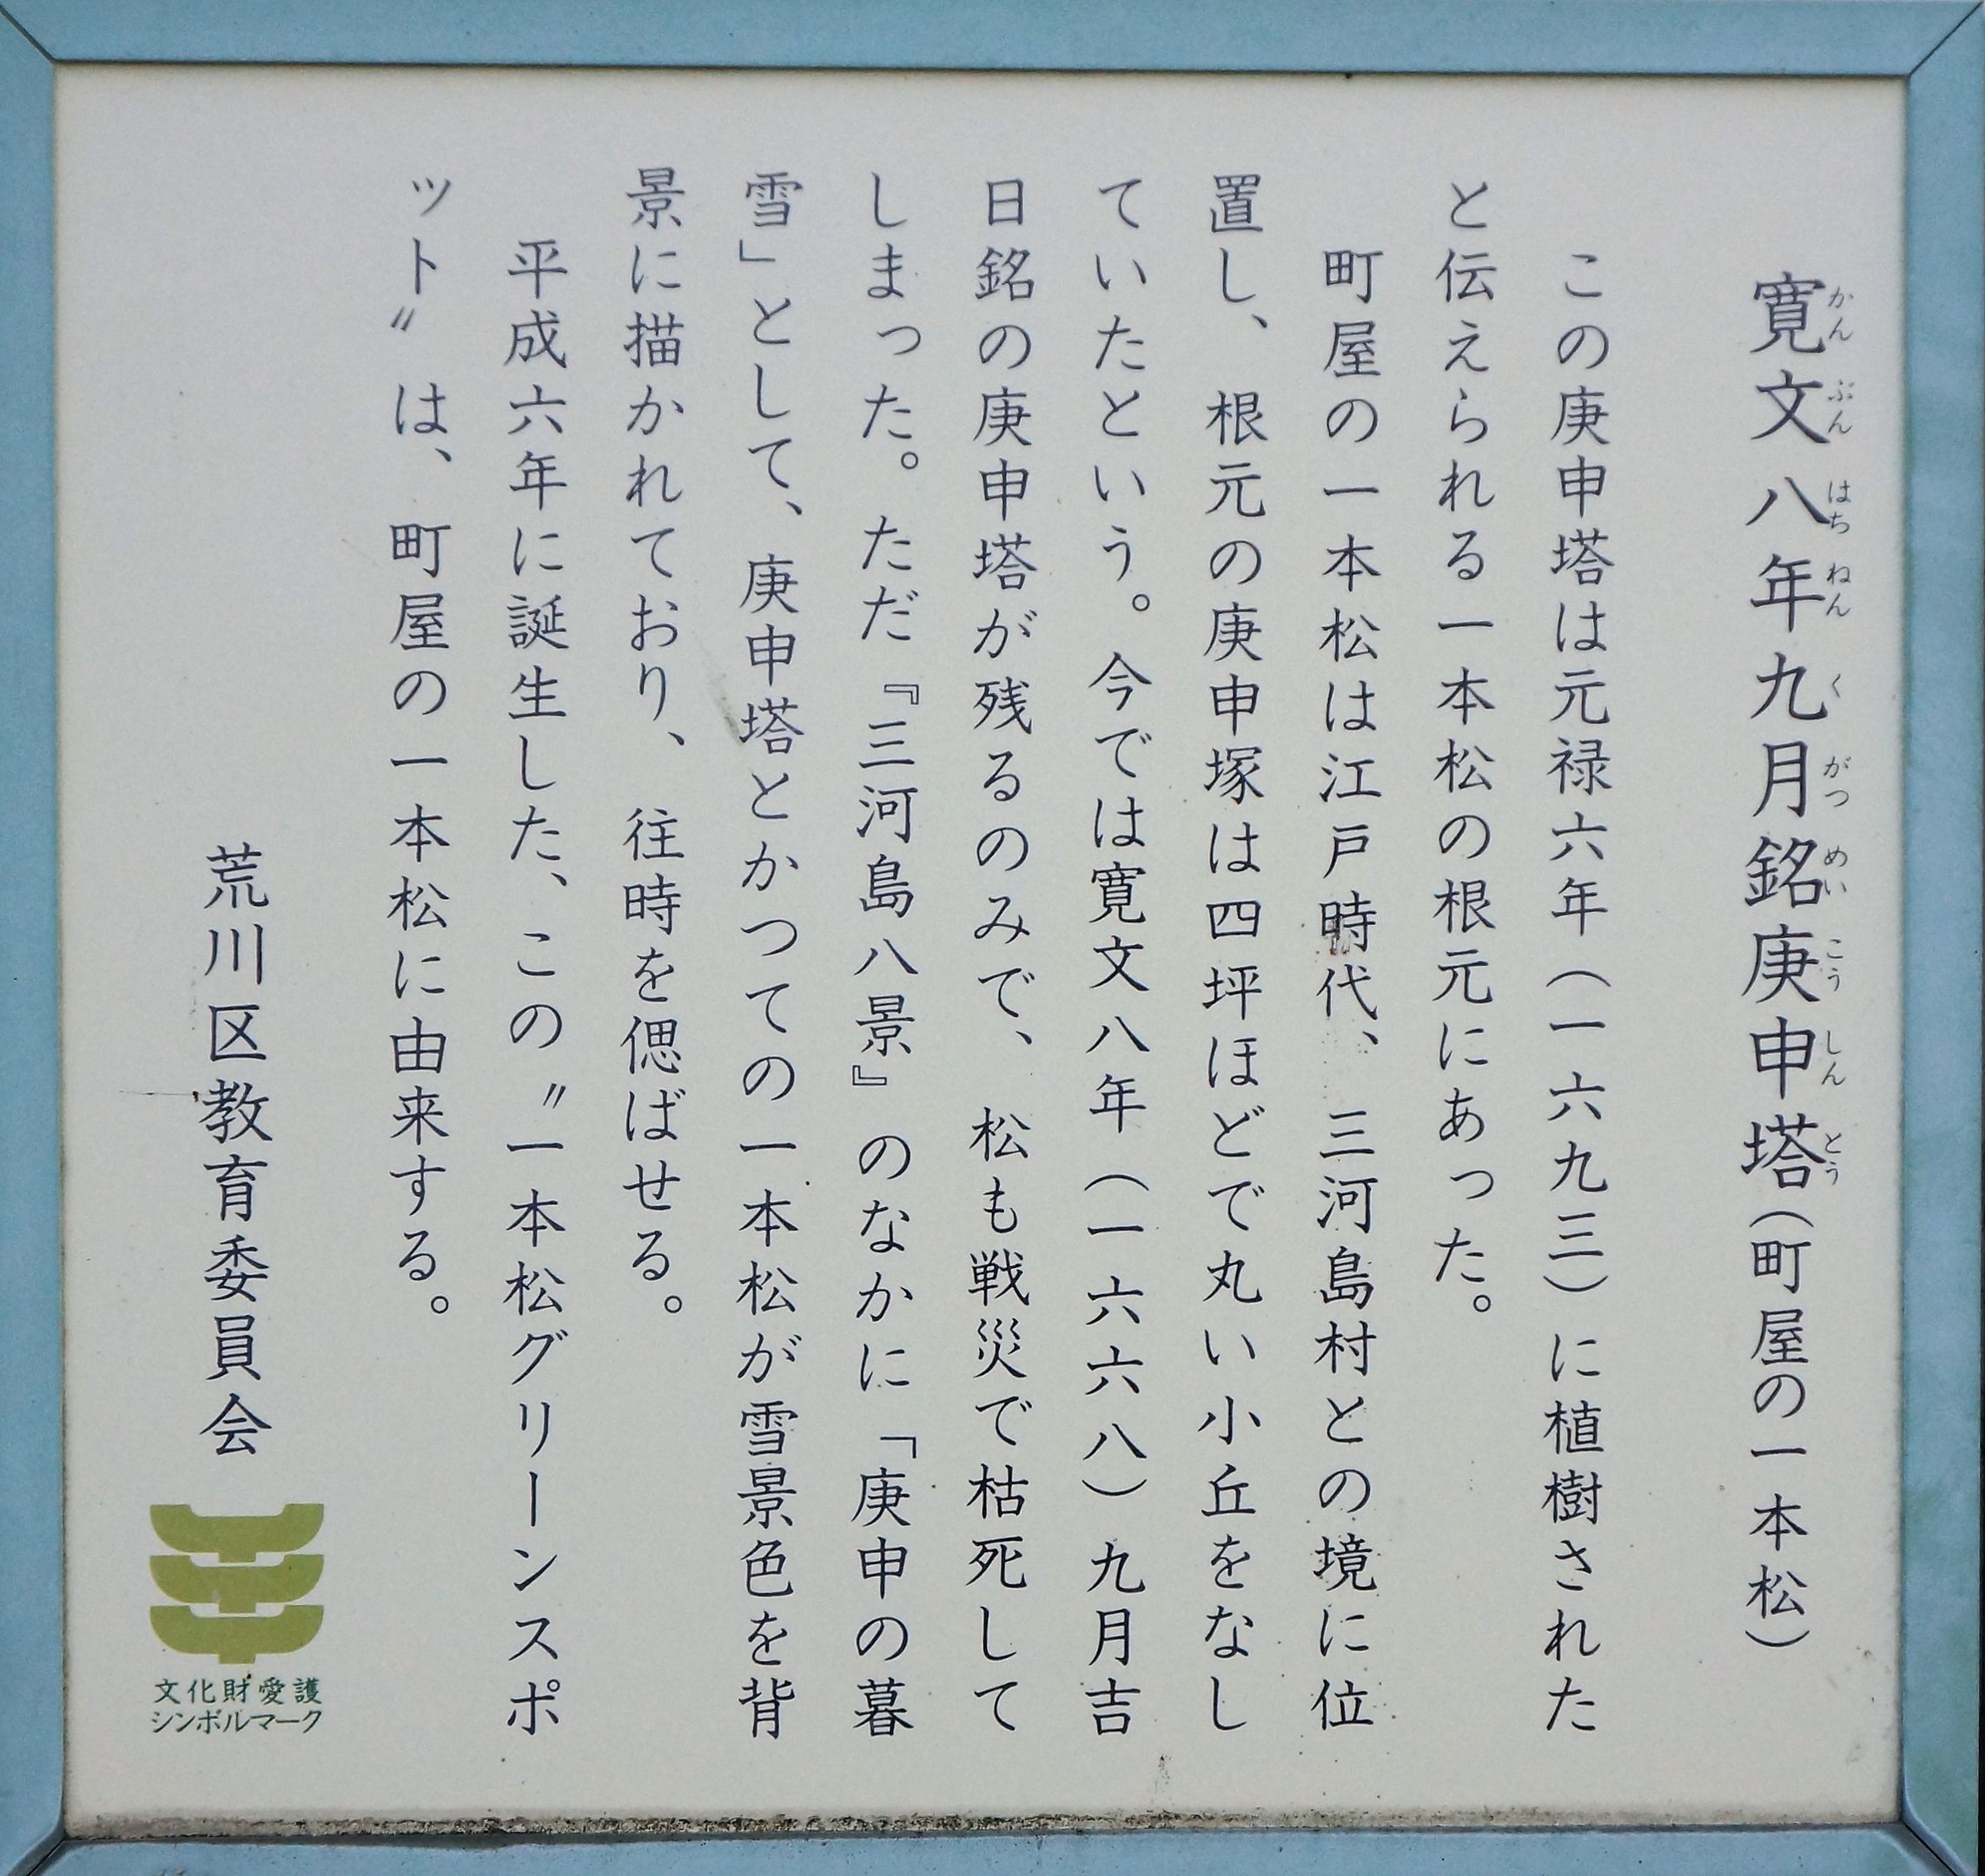 寛文八年九月銘庚申塔（町屋の一本松）
かんぶんはちねんくがつめいこうしんとう
この庚申塔は元禄六年（一六九三）に植樹された
と伝えられる一本松の根元にあった。
町屋の一本松は江戸時代、三河島村との境に位
置し、根元の庚申塚は四坪ほどで丸い小丘をなし
ていたという。今では寛文八年（一六六八）九月吉
日銘の庚申塔が残るのみで、松も戦災で枯死して
しまった。ただ『三河島八景』のなかに「庚申の暮
雪」として、庚申塔とかつての一本松が雪景色を背
景に描かれており、往時を偲ばせる。
平成六年に誕生した、この〝一本松グリーンスポ
ット〟は、町屋の一本松に由来する。
荒川区教育委員会
文化財愛護
シンボルマーク